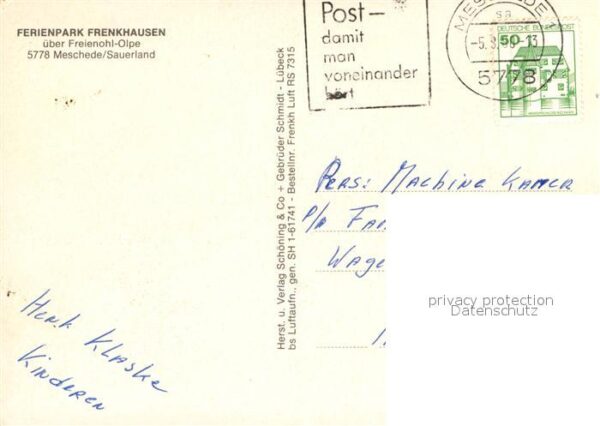 FERIENPARK FRENKHAUSEN
über Freienohl-Olpe
5778 Meschede/Sauerland
Post-
damit
man
voneinander
hört
DEUTSCHE BUNDESPOST
50
5778
Herst. u. Verlag Schöning & Co + Gebrüder Schmidt - Lübeck
bs Luftaufn., gen. SH 1-61741 - Bestellnr. Frenkh Luft RS 7315
Pers: Machine Kamer
p/a Fa
Wage
privacy protection
Datenschutz
Henk Klaske
Kinderen